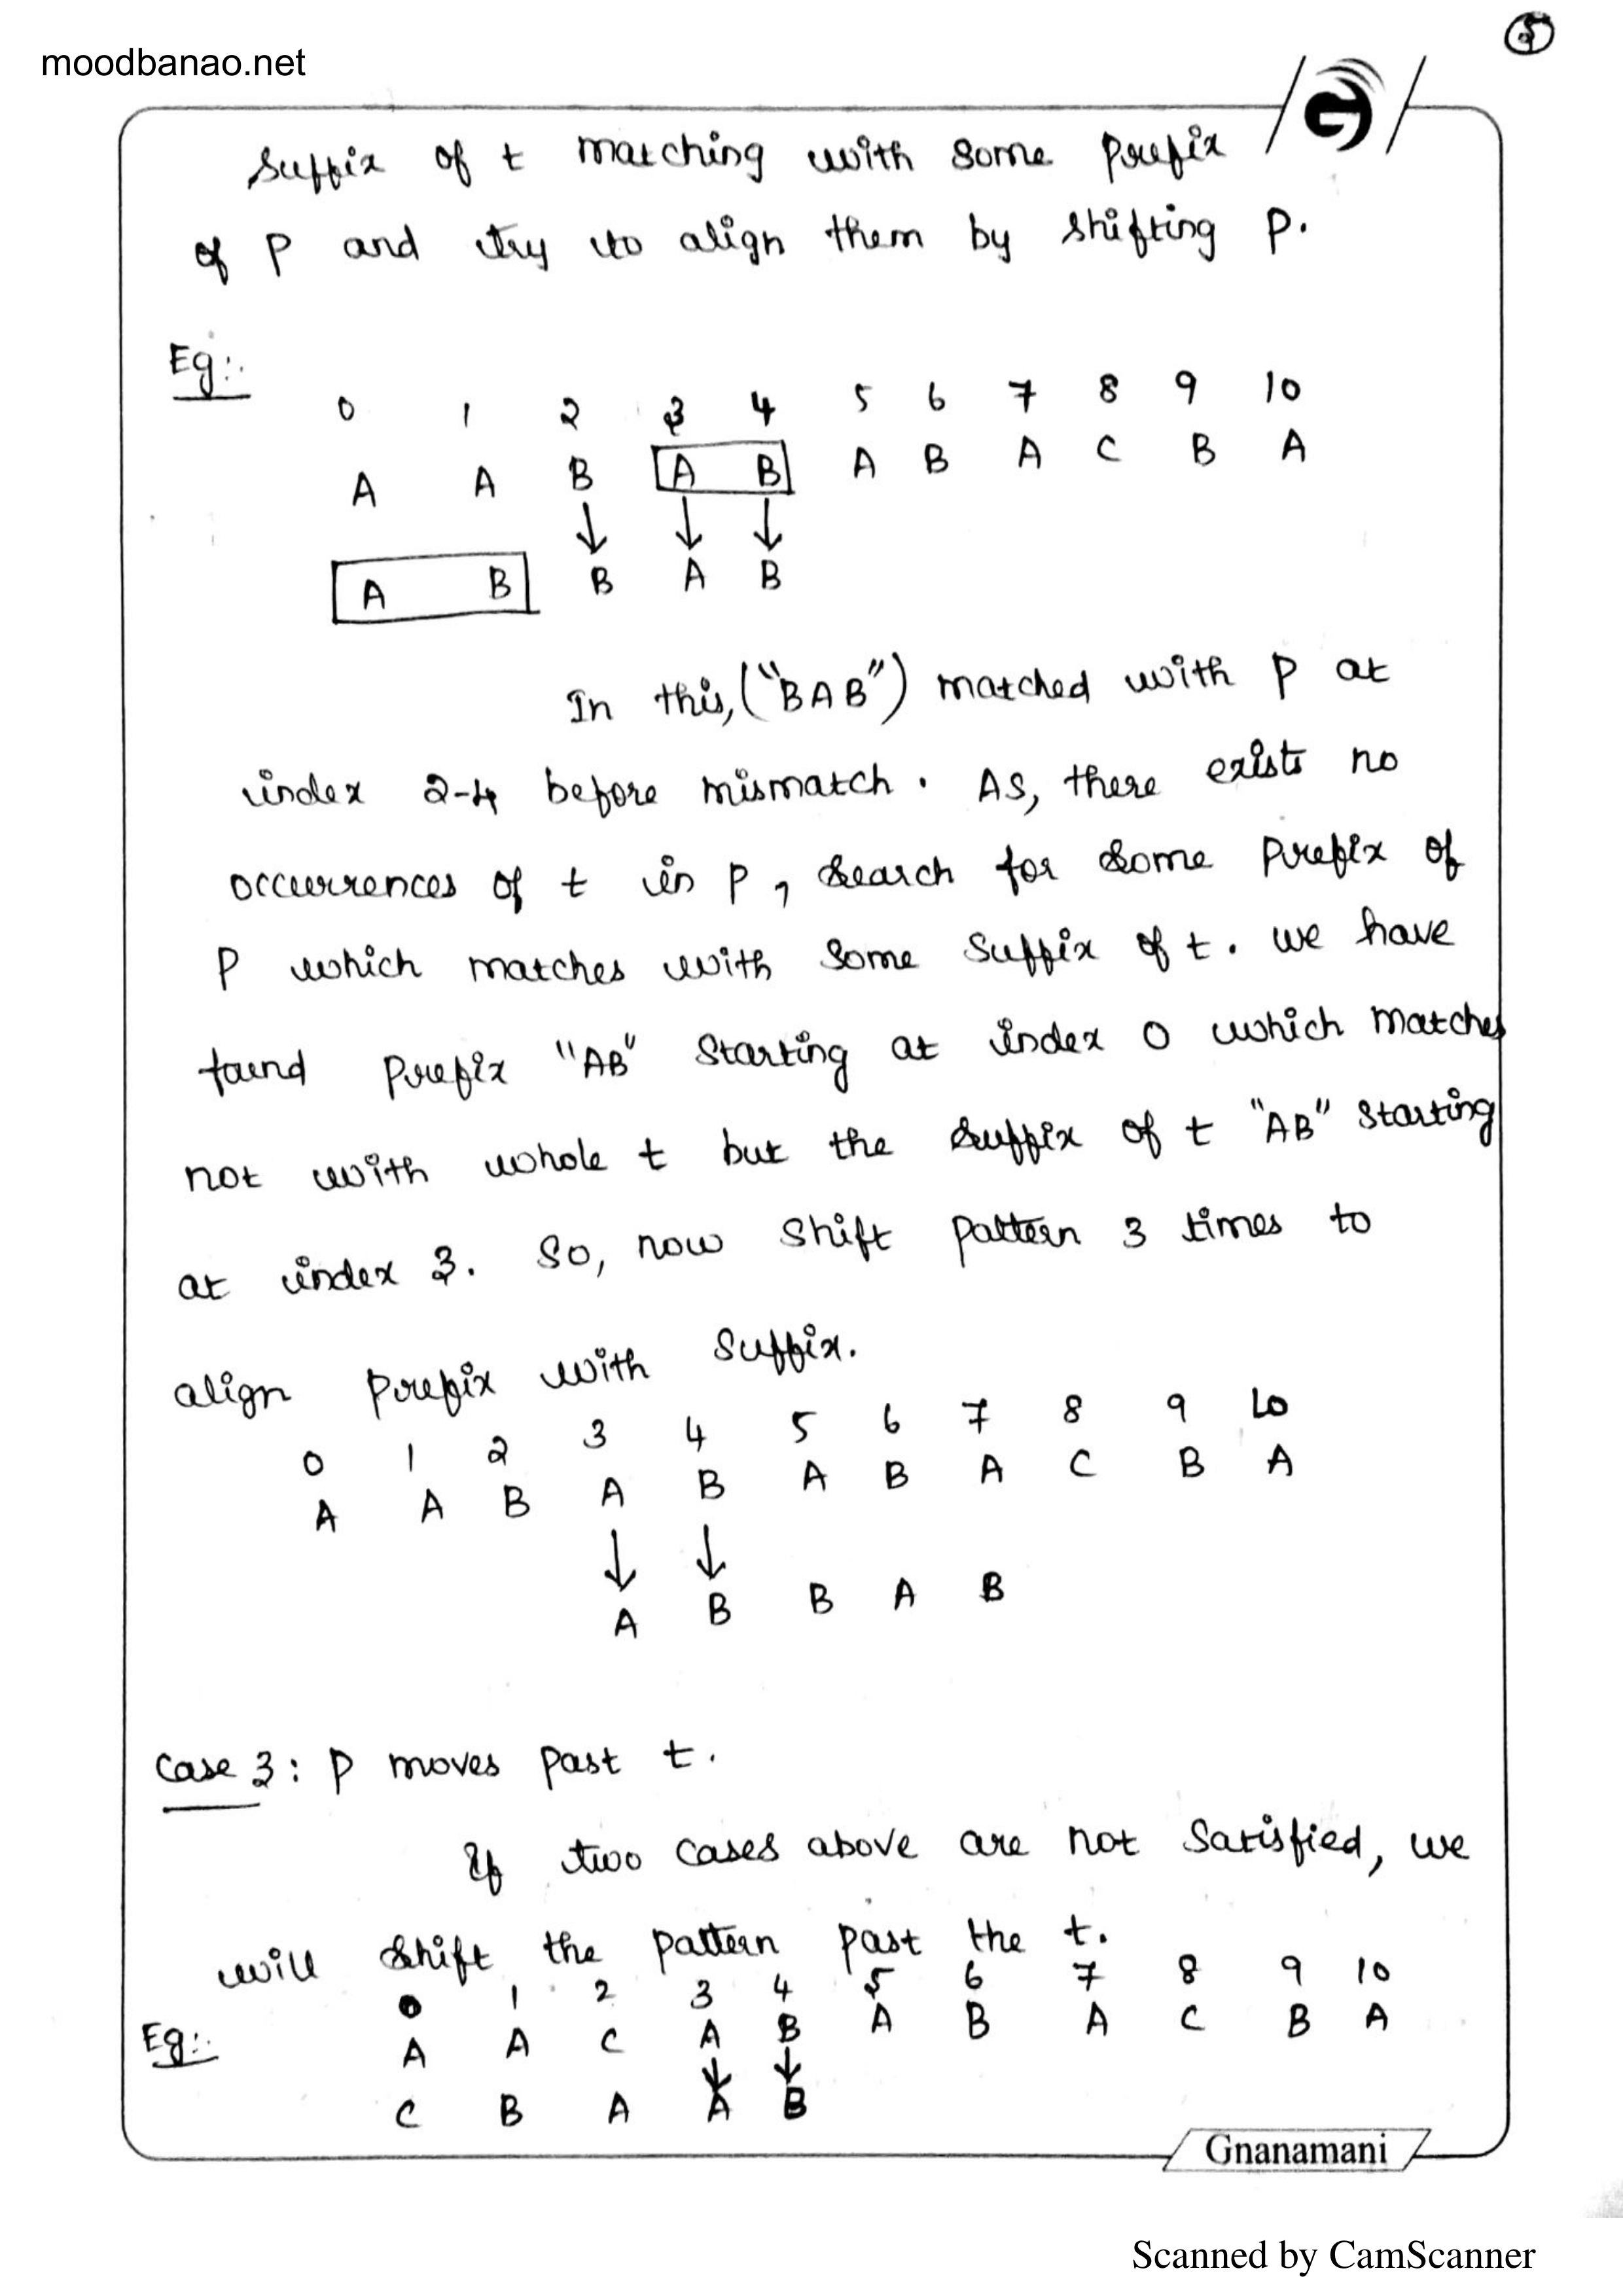 5
moodbanao.net
suffix of t matching with some prefix
of P and try to align them by shifting P.
Eg:-
0 1 2 3 4 5 6 7 8 9 10
A A B A B A B A C B A
A B B A B
In this, ("BAB") matched with P at
index 2-4 before mismatch. As, there exists no
occurrences of t in P, search for some prefix of
P which matches with some suffix of t. we have
found prefix "AB" starting at index 0 which matches
not with whole t but the suffix of t "AB" starting
at index 3. So, now shift pattern 3 times to
align prefix with suffix.
0 1 2 3 4 5 6 7 8 9 10
A A B A B A B A C B A
A B B A B
Case 3: P moves past t.
If two cases above are not satisfied, we
will shift the pattern past the t.
0 1 2 3 4 5 6 7 8 9 10
Eg:- A A C A B A B A C B A
C B A A B
Gnanamani
Scanned by CamScanner